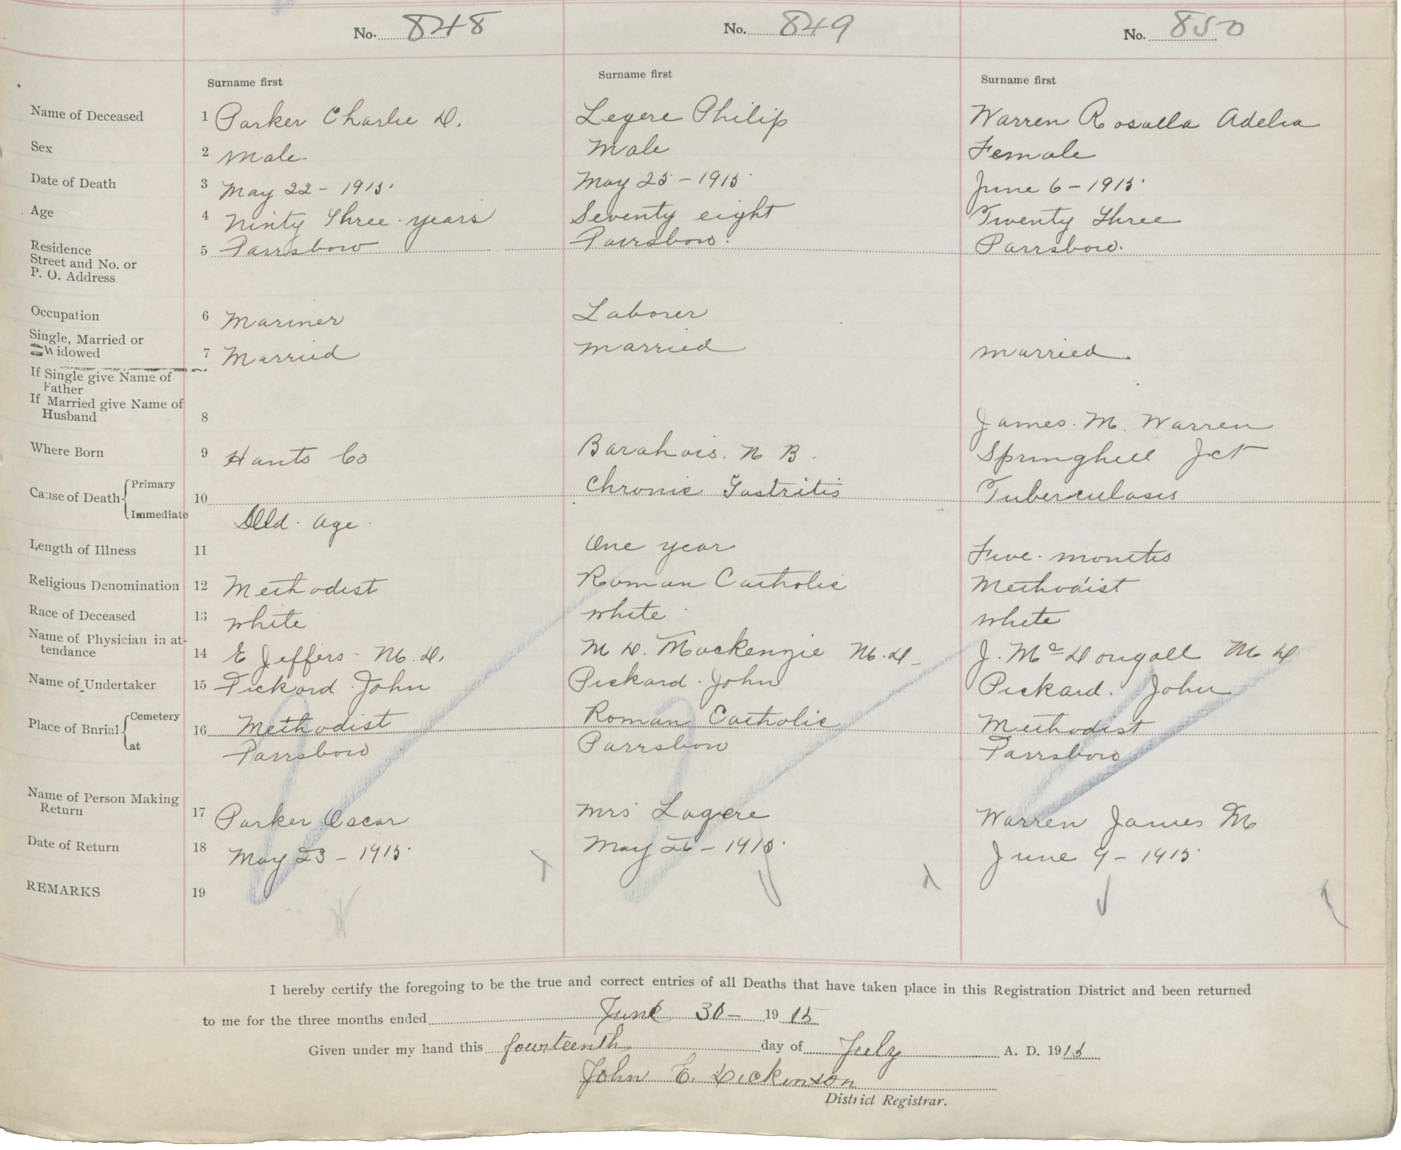 No. 848 No. 849 No. 850
Surname first Surname first Surname first
Name of Deceased 1 Parker Charlie D. Legere Philip Warren Rosaella Adelia
Sex 2 Male. Male Female
Date of Death 3 May 22 - 1915. May 25 - 1915. June 6 - 1915.
Age 4 Ninty Three years Seventy eight Twenty Three
Residence
Street and No. or
P. O. Address 5 Parrsboro Parrsboro. Parrsboro.
Occupation 6 Mariner Laborer
Single, Married or
Widowed 7 Married Married Married
If Single give Name of
Father
If Married give Name of
Husband 8 James. M. Warren
Where Born 9 Hants Co Barahois. N B. Springhill Jct
Cause of Death Primary 10 Chronic Gastritis Tuberculosis
Immediate Old Age
Length of Illness 11 One year Five months
Religious Denomination 12 Methodist Roman Catholic Methodist
Race of Deceased 13 White White White
Name of Physician in at-
tendance 14 E Jeffers - M. D. M D. Mackenzie M. D. J. McDougall M D
Name of Undertaker 15 Pickard John Pickard. John Pickard. John
Place of Burial Cemetery 16 Methodist Roman Catholic Methodist
at Parrsboro Parrsboro Parrsboro
Name of Person Making
Return 17 Parker Oscar Mrs Lagere Warren James M
Date of Return 18 May 23 - 1915. May 26 - 1915. June 9 - 1915
REMARKS 19
I hereby certify the foregoing to be the true and correct entries of all Deaths that have taken place in this Registration District and been returned
to me for the three months ended June 30 - 1915
Given under my hand this fourteenth day of July A. D. 1915
John E. Dickinson
District Registrar.